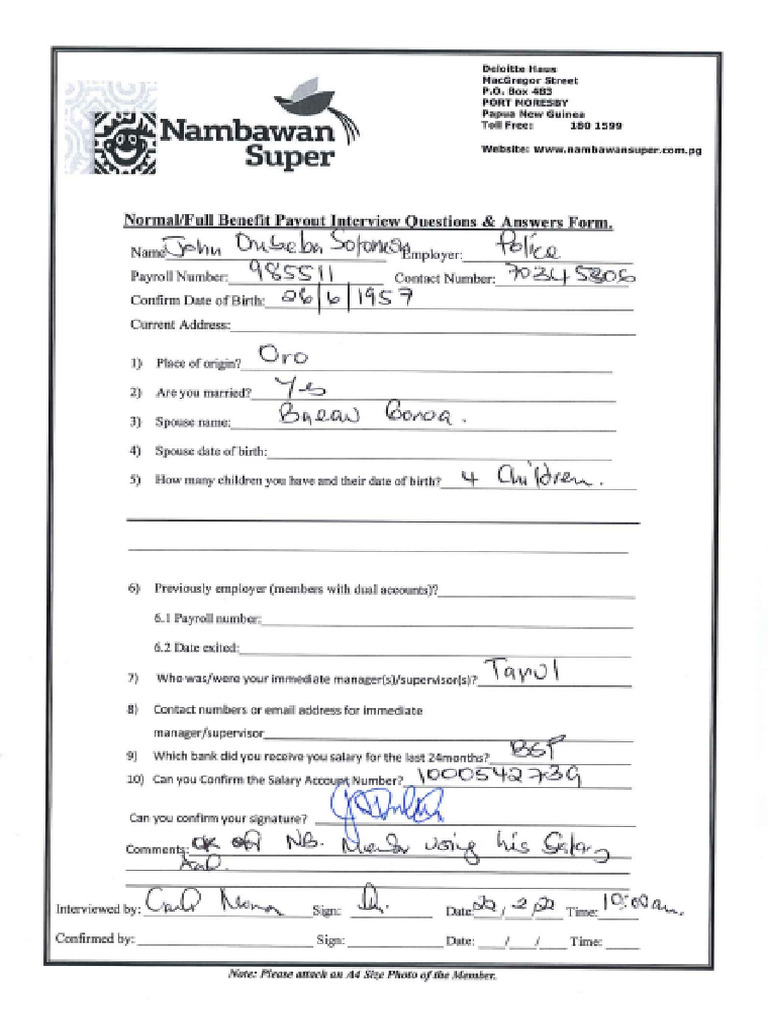 Deloitte Haus
MacGregor Street
P.O. Box 483
PORT MORESBY
Papua New Guinea
Toll Free: 180 1599
Website: www.nambawansuper.com.pg
Nambawan
Super
Normal/Full Benefit Payout Interview Questions & Answers Form.
Name: John Employer: Police
Payroll Number: 985511 Contact Number: 70345806
Confirm Date of Birth: 06|6|1957
Current Address:
1) Place of origin? Oro
2) Are you married? Yes
3) Spouse name:
4) Spouse date of birth:
5) How many children you have and their date of birth? 4 Children.
6) Previously employer (members with dual accounts)?
6.1 Payroll number:
6.2 Date exited:
7) Who was/were your immediate manager(s)/supervisor(s)?
8) Contact numbers or email address for immediate
manager/supervisor
9) Which bank did you receive you salary for the last 24months? BSP
10) Can you Confirm the Salary Account Number? 1000542739
Can you confirm your signature?
Comments: OK NB. Member using his Salary
Interviewed by: Sign: Date: 22/2/22 Time: 10:00am.
Confirmed by: Sign: Date: / / Time:
Note: Please attach an A4 Size Photo of the Member.